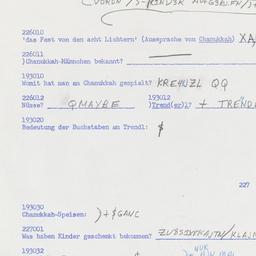 226010
'das Fest von den acht Lichtern' (Aussprache von Chanukkah)
226011
)Chanukkah-Männchen bekannt?
193010
Womit hat man an Chanukkah gespielt? KREHNZL QQ
226012 193012
Nüsse? QMAYBE )Trend(er)l? + TREND
193020
Bedeutung der Buchstaben am Trendl: $
227
193030
Chanukkah-Speisen: )+$GANC
227001
Was haben Kinder geschenkt bekommen?
NUR
193032